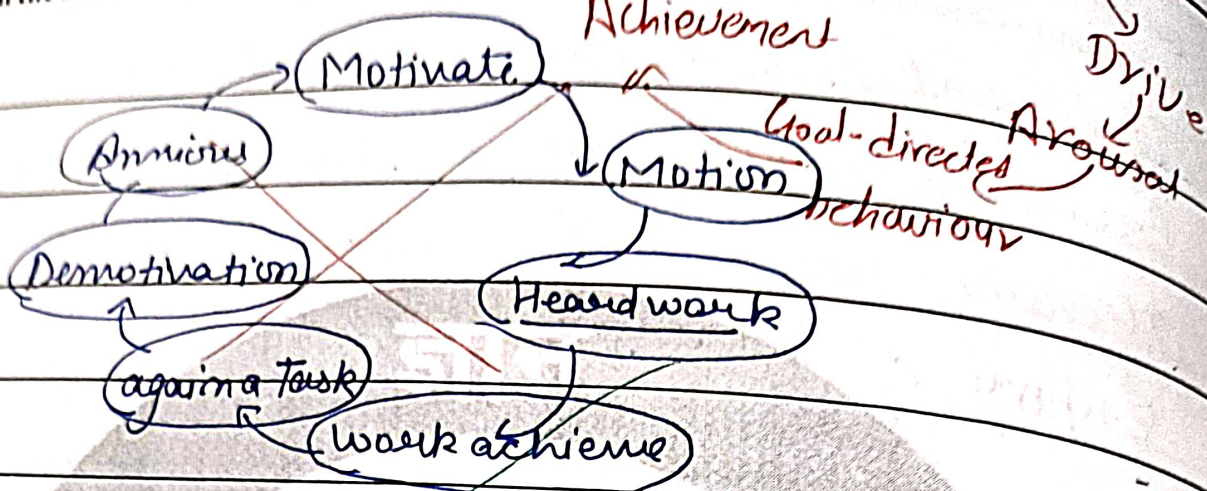 Achievement
Drive
Motivate
Arousal
Goal-directed
behaviour
Motion
Anxious
Demotivation
Heardwork
again a Task
work achieve